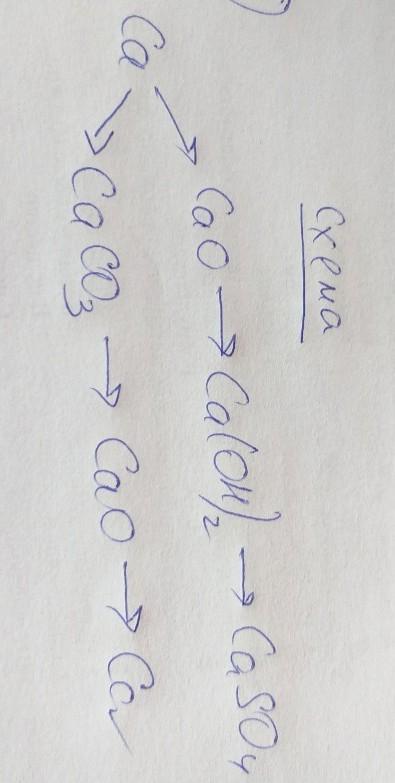 Схема
CaO → Ca(OH)₂ → CaSO₄
Ca
CaCO₃ → CaO → Ca